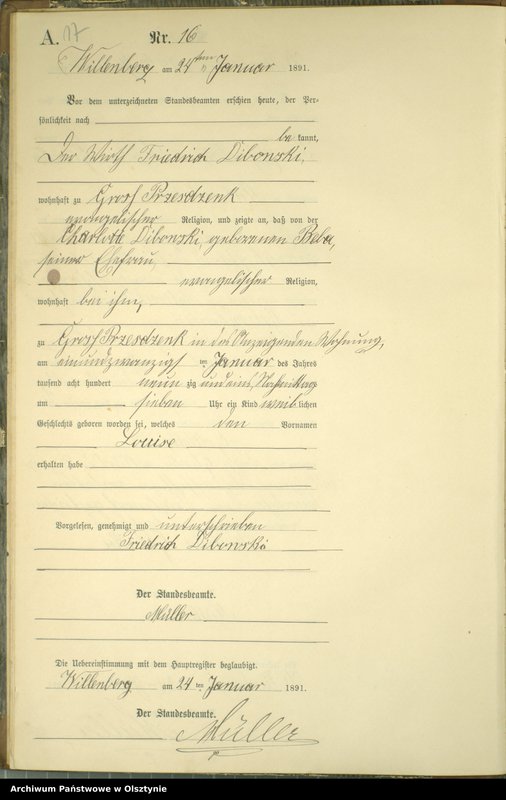 A. 17 Nr. 16
Willenberg am 24 ten Januar 1891.
Vor dem unterzeichneten Standesbeamten erschien heute, der Per-
sönlichkeit nach
be kannt,
Der Wirth Friedrich Dibowski,
wohnhaft zu Groß Przesdzenk
evangelischer Religion, und zeigte an, daß von der
Charlotte Dibowski, geborenen Beba,
seiner Ehefrau,
evangelischer Religion,
wohnhaft bei ihm,
zu Groß Przesdzenk in des Anzeigenden Wohnung,
am einundzwanzigst ten Januar des Jahres
tausend acht hundert neun zig und eins, Nachmittag
um sieben Uhr ein Kind weib lichen
Geschlechts geboren worden sei, welches den Vornamen
Louise
erhalten habe
Vorgelesen, genehmigt und unterschrieben
Friedrich Dibowski
Der Standesbeamte.
Müller
Die Uebereinstimmung mit dem Hauptregister beglaubigt.
Willenberg am 24 ten Januar 1891.
Der Standesbeamte.
Müller
Archiwum Państwowe w Olsztynie